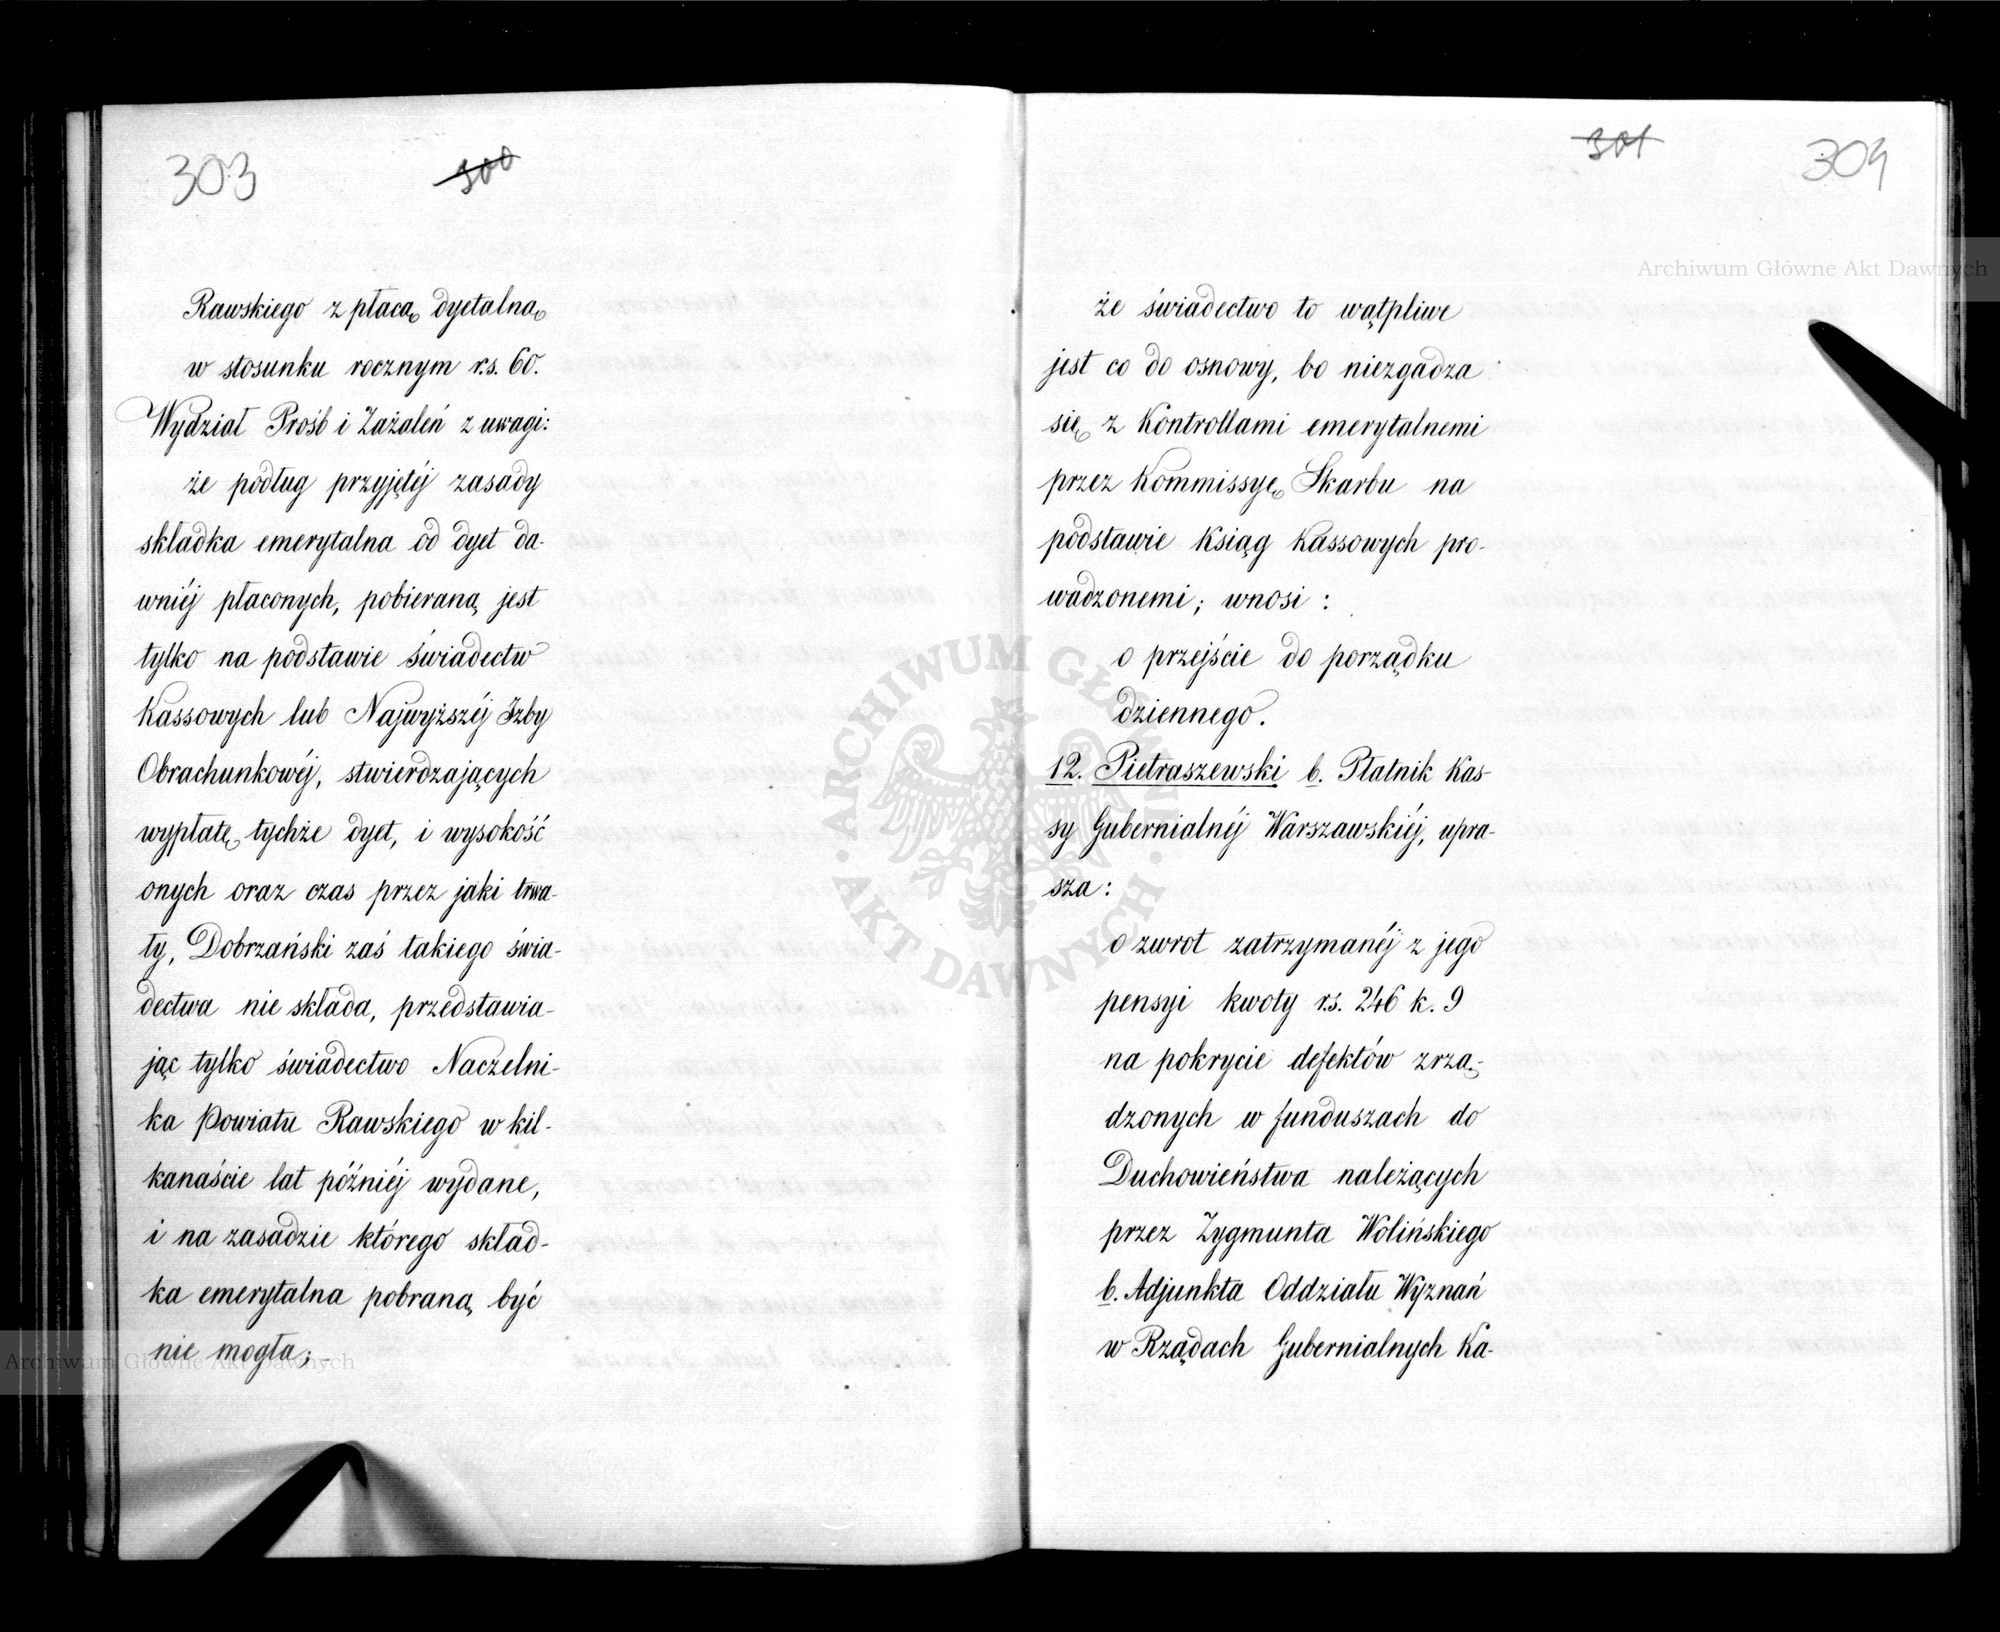 303 300
Rawskiego z płacą dyetalną
w stosunku rocznym r.s. 60.
Wydział Prośb i Zażaleń z uwagi:
że podług przyjętéj zasady
składka emerytalna od dyet da-
wniéj płaconych, pobieraną jest
tylko na podstawie świadectw
Kassowych lub Najwyższéj Izby
Obrachunkowéj, stwierdzających
wypłatę tychże dyet, i wysokość
onych oraz czas przez jaki trwa-
ły, Dobrzański zaś takiego świa-
dectwa nie składa, przedstawia-
jąc tylko świadectwo Naczelni-
ka Powiatu Rawskiego w kil-
kanaście lat późniéj wydane,
i na zasadzie którego skład-
ka emerytalna pobraną być
nie mogła;-
301 304
że świadectwo to wątpliwe
jest co do osnowy, bo niezgadza
się z Kontrollami emerytalnemi
przez Kommissyę Skarbu na
podstawie Ksiąg Kassowych pro-
wadzonemi; wnosi :
o przejście do porządku
dziennego.
12. Pietraszewski b. Płatnik Kas-
sy Gubernialnéj Warszawskiéj, upra-
sza:
o zwrot zatrzymanéj z jego
pensyi kwoty rs. 246 k. 9
na pokrycie defektów zrzą-
dzonych w funduszach do
Duchowieństwa należących
przez Zygmunta Wolińskiego
b. Adjunkta Oddziału Wyznań
w Rządach Gubernialnych Ka-
Archiwum Główne Akt Dawnych
Archiwum Główne Akt Dawnych
ARCHIWUM GŁÓWNE · AKT DAWNYCH ·